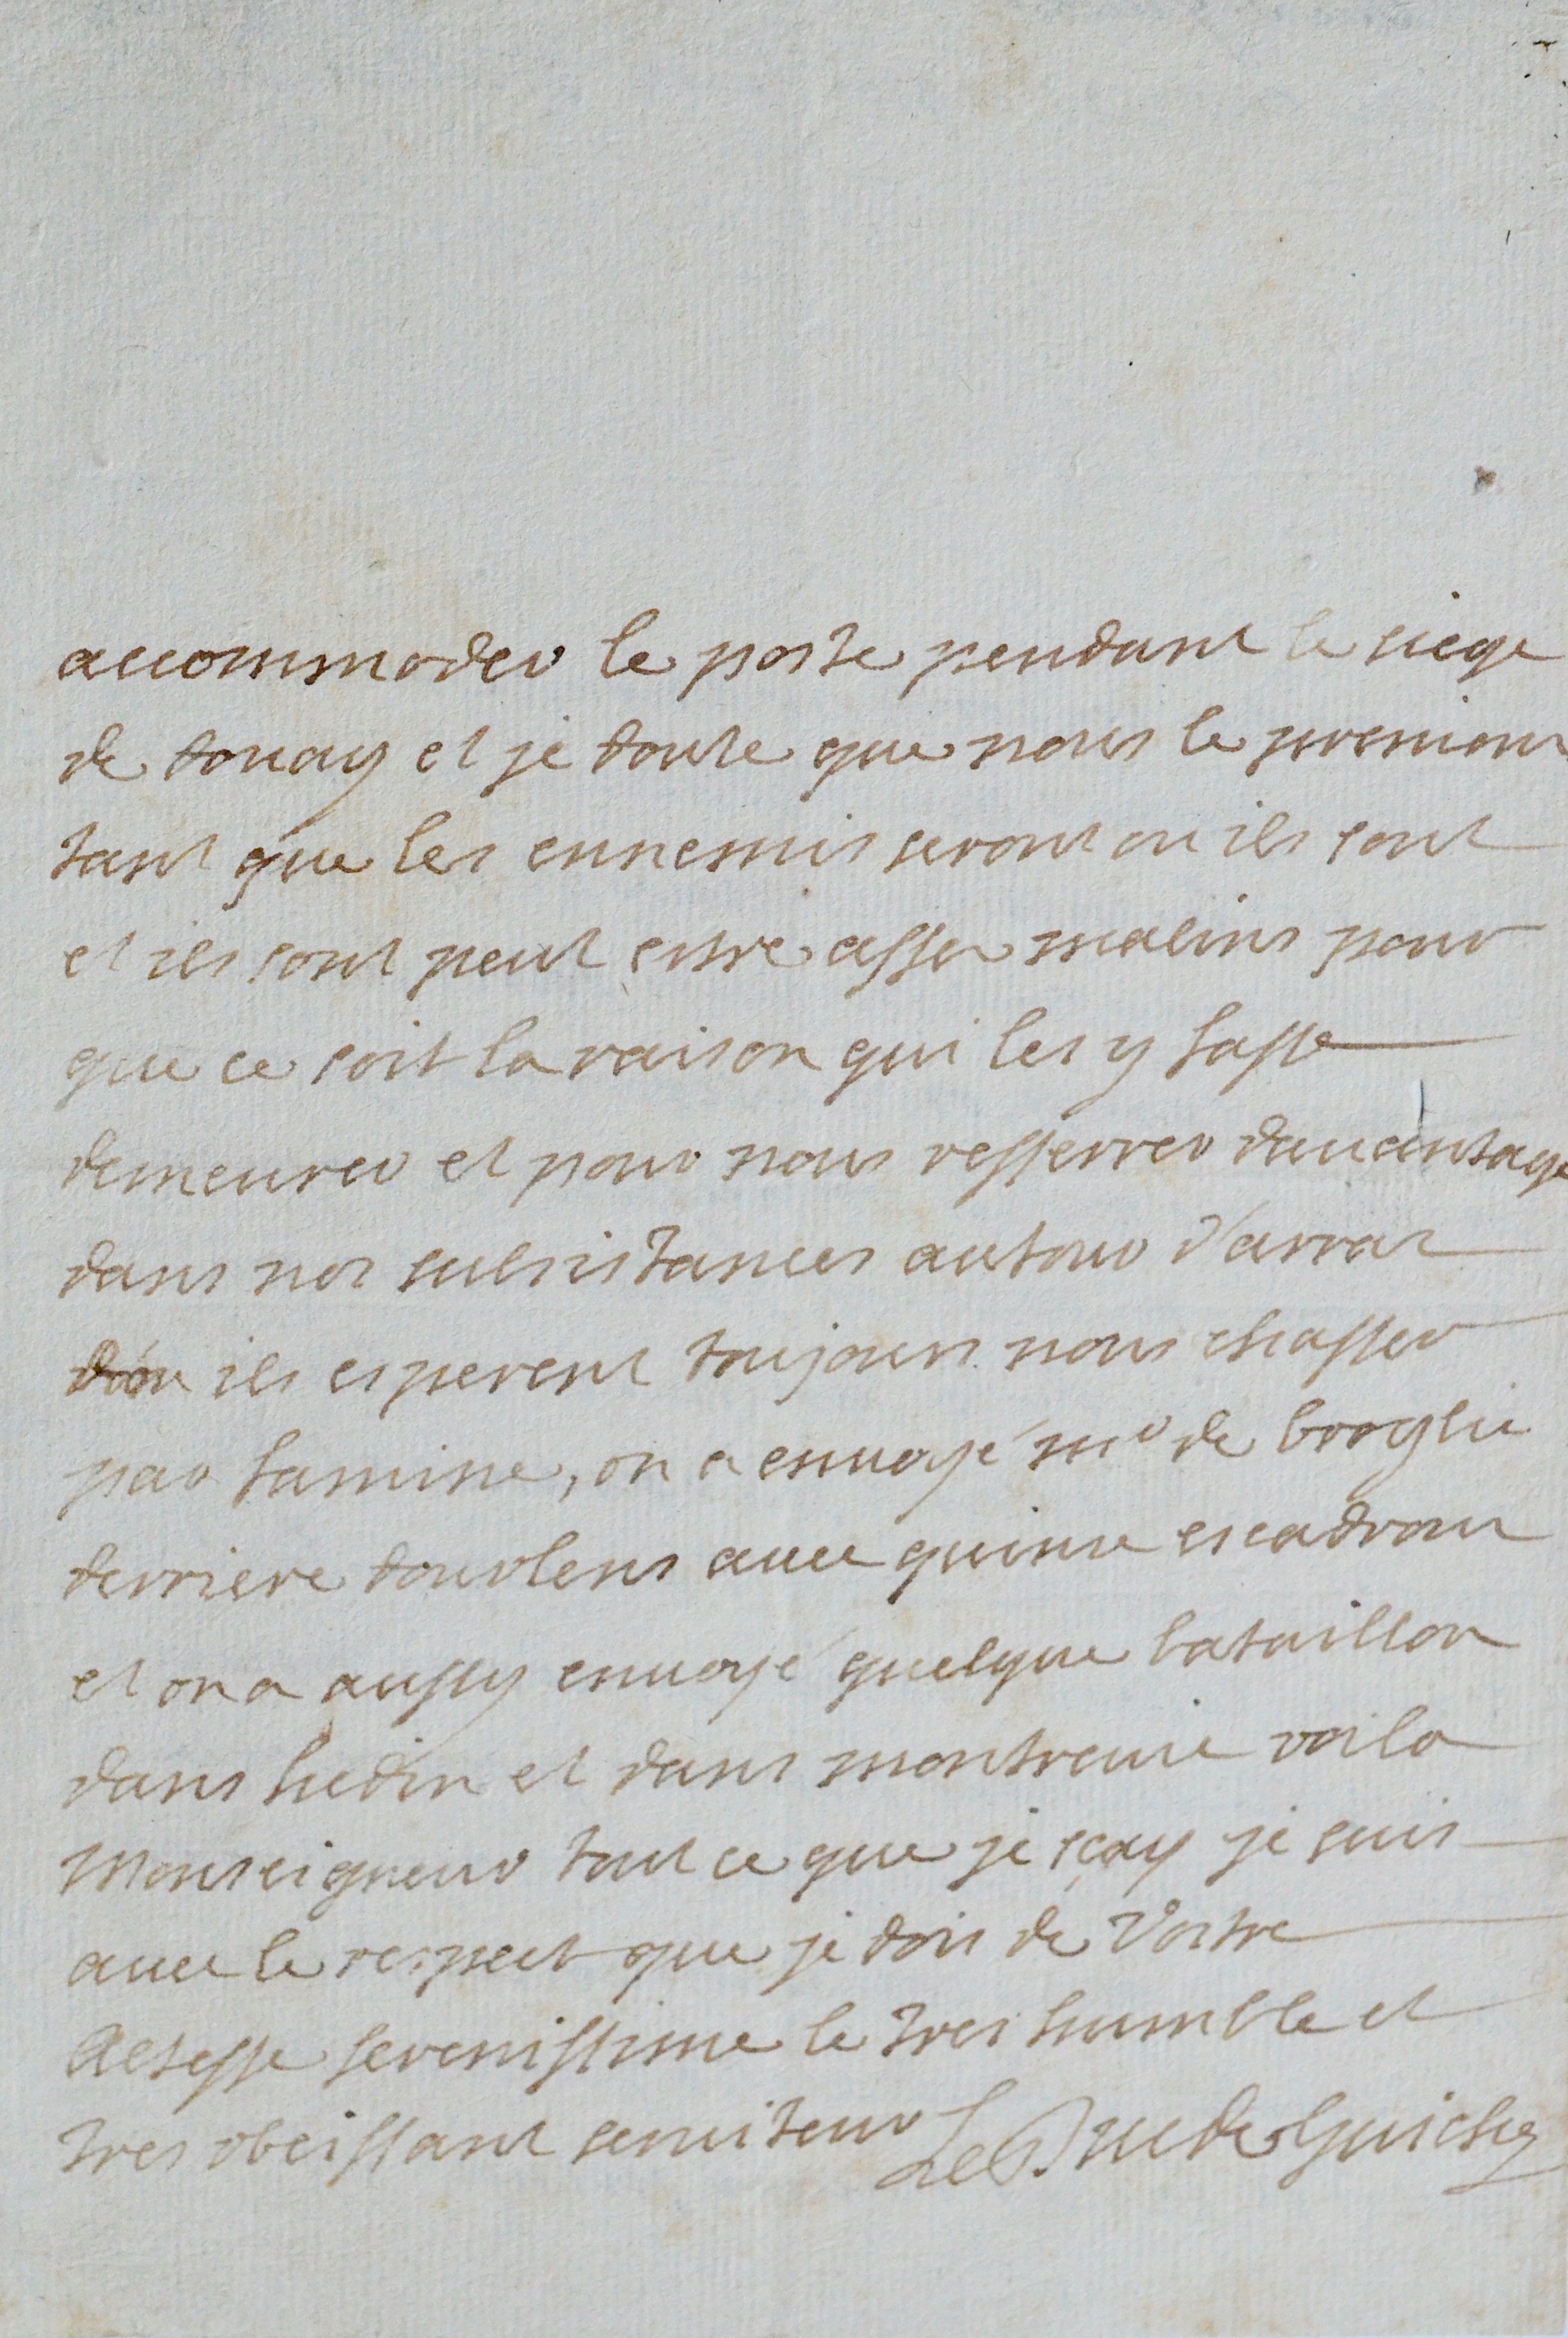 accommoder le poste pendant le siege
de douay et je doute que nous le prenions
tant que les ennemis seront ou ils sont
et ils sont peut estre assez malins pour
que ce soit la raison qui les y fasse
demeurer et pour nous resserrer dauantage
dans nos subsistances autour d'arras
d'ou ils esperent toujours nous chasser
par famine, on a enuoyé mr de broglie
derriere dourlens auec quinse escadrons
et on a aussy enuoyé quelque bataillon
dans hedin et dans montreuie voila
Monseigneur tout ce que je sçay je suis
auec le respect que je dois de Vostre
Altesse serenissime le tres humble et
tres obeissant seruiteur Le Duc de Guiche